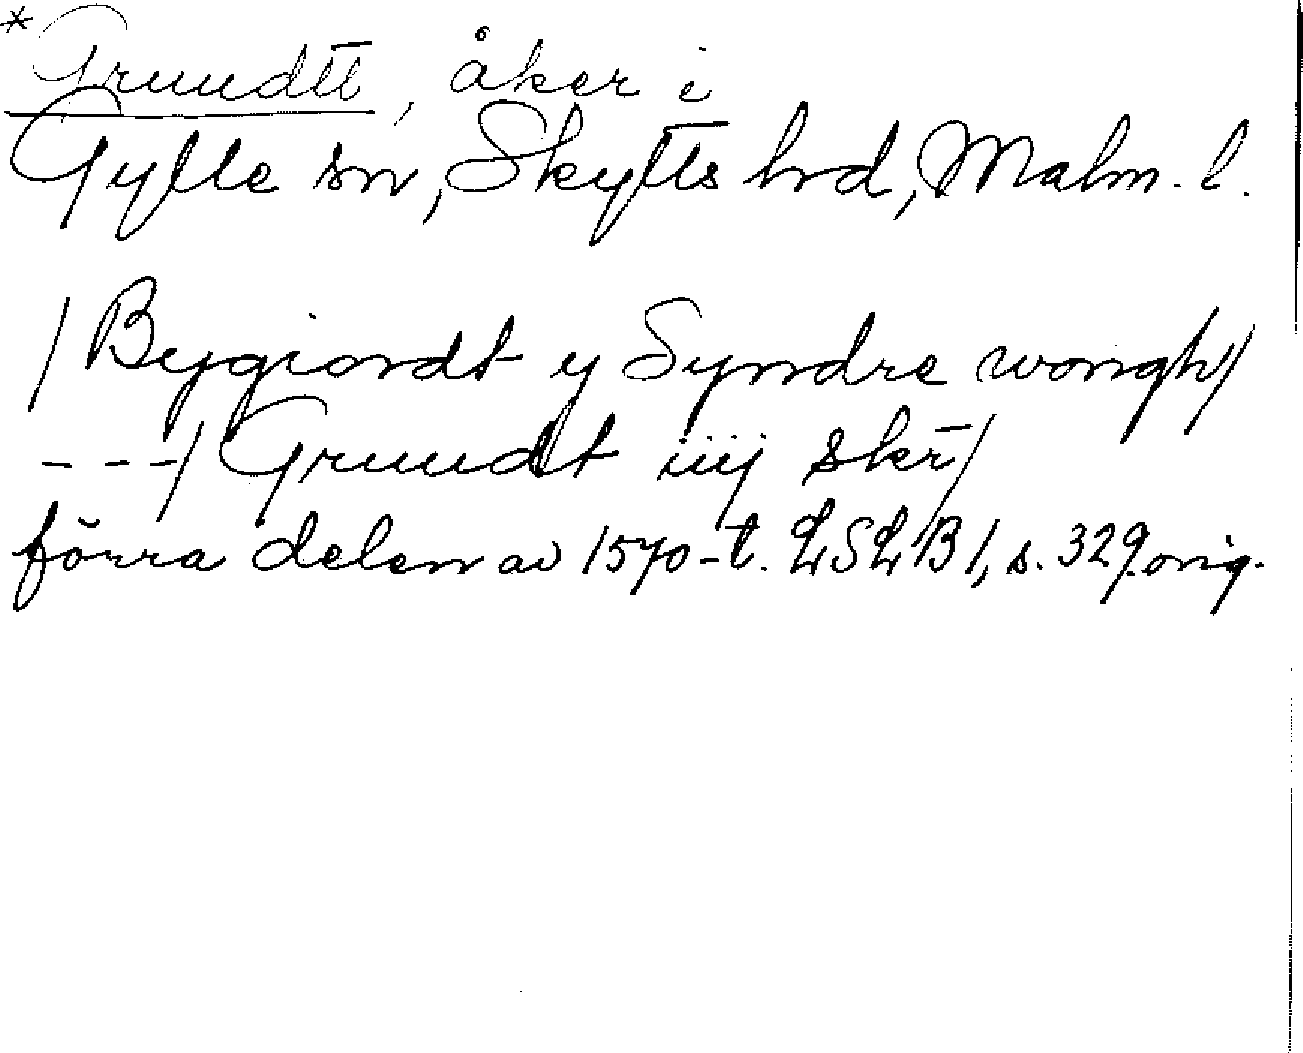 *Grundtt, åker i
Gylle sn, Skytts hrd, Malm. l.
/Bygiordt y Syndre wongh/
---/Grundt iiij skr̄/
förra delen av 1570-t. LSLB1, s. 329. orig.